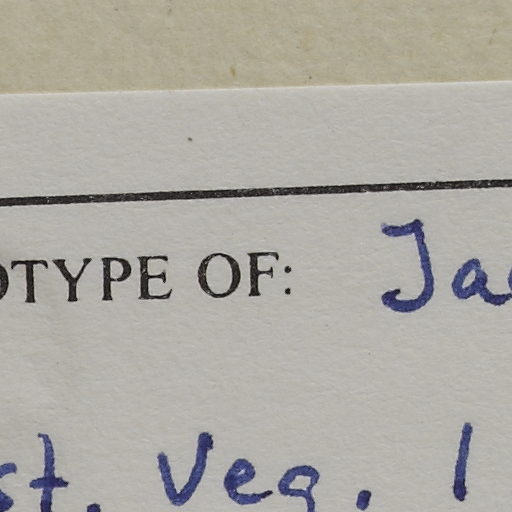 OTYPE OF: Ja
st. Veg. 1